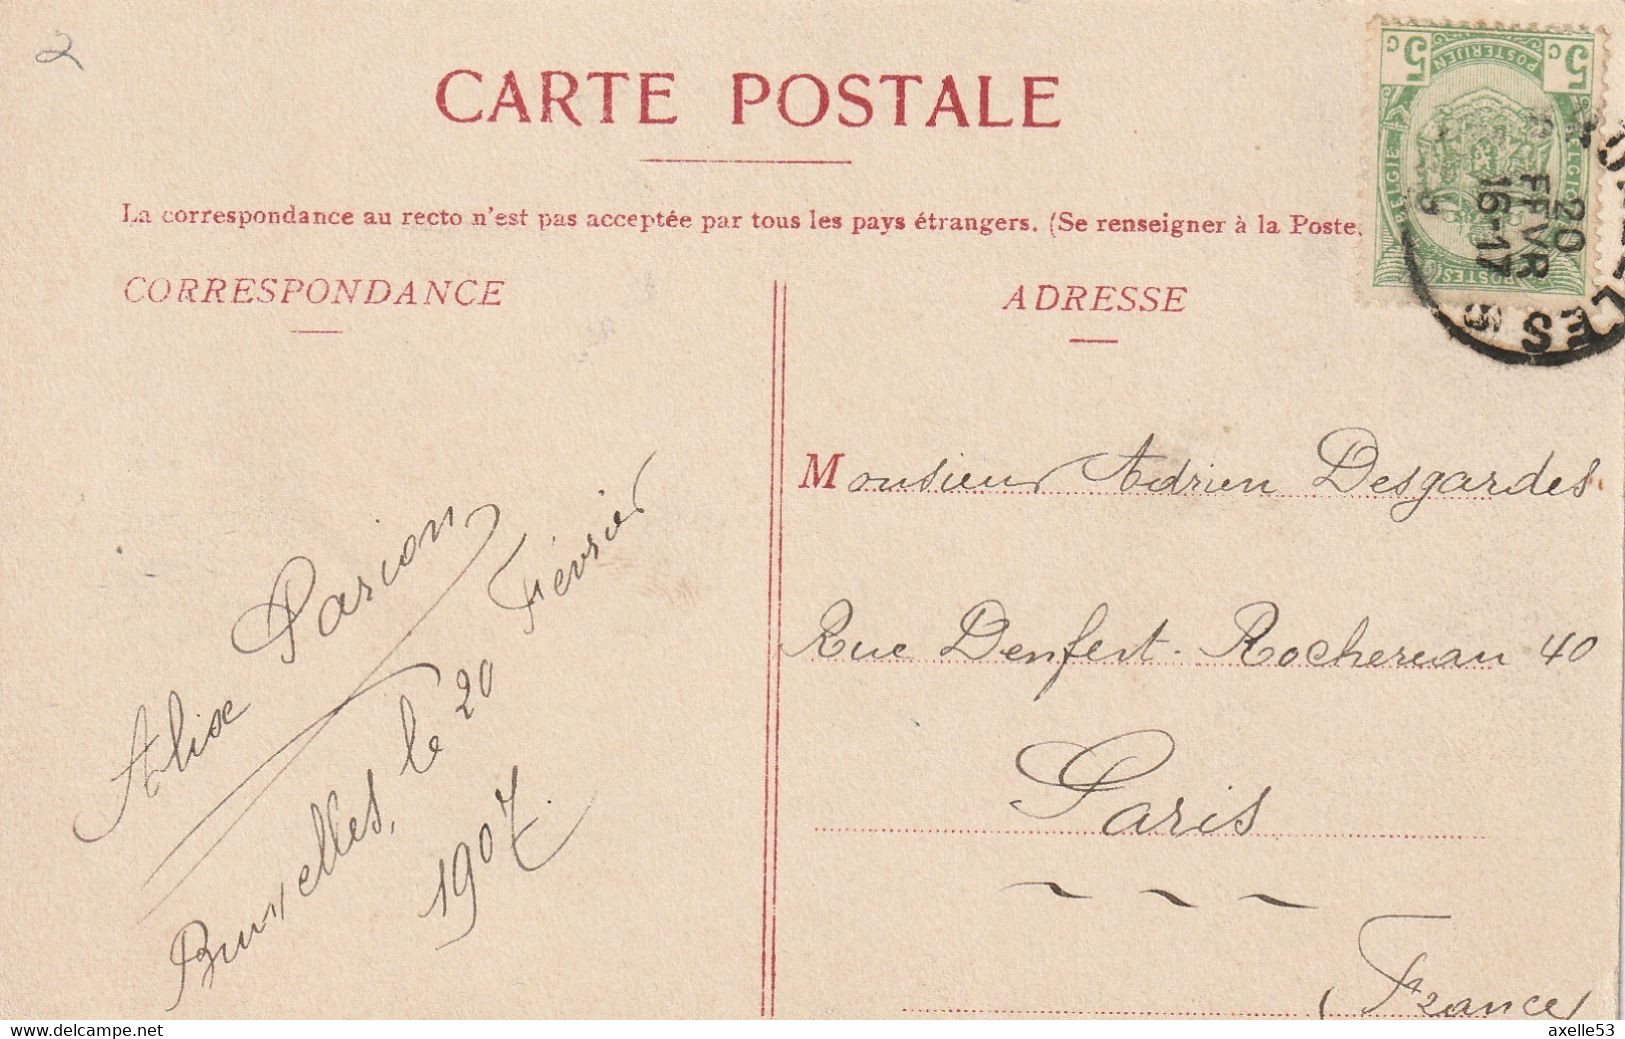 2
CARTE POSTALE
La correspondance au recto n'est pas acceptée par tous les pays étrangers. (Se renseigner à la Poste.
CORRESPONDANCE
Alix Parion
Bruxelles, le 20 Février
1907.
ADRESSE
Monsieur Adrien Desgardes
Rue Denfert-Rochereau 40
Paris
(France)
5 c POSTERIJEN 5 c
BELGIE
BELGIQUE
POSTES
20
FEVR
16-17
axelle53